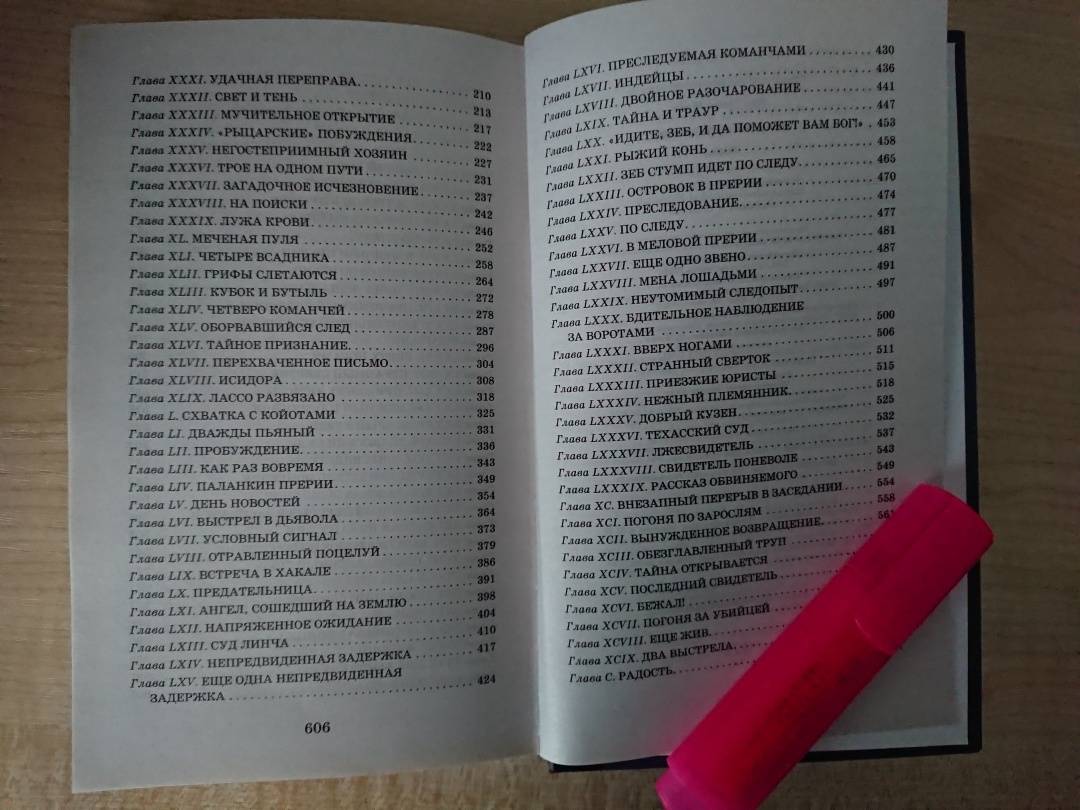 Глава XXXI. УДАЧНАЯ ПЕРЕПРАВА. 210
Глава XXXII. СВЕТ И ТЕНЬ 213
Глава XXXIII. МУЧИТЕЛЬНОЕ ОТКРЫТИЕ 217
Глава XXXIV. «РЫЦАРСКИЕ» ПОБУЖДЕНИЯ. 222
Глава XXXV. НЕГОСТЕПРИИМНЫЙ ХОЗЯИН 227
Глава XXXVI. ТРОЕ НА ОДНОМ ПУТИ 231
Глава XXXVII. ЗАГАДОЧНОЕ ИСЧЕЗНОВЕНИЕ 237
Глава XXXVIII. НА ПОИСКИ 242
Глава XXXIX. ЛУЖА КРОВИ. 246
Глава XL. МЕЧЕНАЯ ПУЛЯ 252
Глава XLI. ЧЕТЫРЕ ВСАДНИКА 258
Глава XLII. ГРИФЫ СЛЕТАЮТСЯ 264
Глава XLIII. КУБОК И БУТЫЛЬ 272
Глава XLIV. ЧЕТВЕРО КОМАНЧЕЙ 278
Глава XLV. ОБОРВАВШИЙСЯ СЛЕД 287
Глава XLVI. ТАЙНОЕ ПРИЗНАНИЕ. 296
Глава XLVII. ПЕРЕХВАЧЕННОЕ ПИСЬМО. 304
Глава XLVIII. ИСИДОРА 308
Глава XLIX. ЛАССО РАЗВЯЗАНО 318
Глава L. СХВАТКА С КОЙОТАМИ 325
Глава LI. ДВАЖДЫ ПЬЯНЫЙ 331
Глава LII. ПРОБУЖДЕНИЕ. 336
Глава LIII. КАК РАЗ ВОВРЕМЯ 343
Глава LIV. ПАЛАНКИН ПРЕРИИ. 349
Глава LV. ДЕНЬ НОВОСТЕЙ 354
Глава LVI. ВЫСТРЕЛ В ДЬЯВОЛА 364
Глава LVII. УСЛОВНЫЙ СИГНАЛ 373
Глава LVIII. ОТРАВЛЕННЫЙ ПОЦЕЛУЙ 379
Глава LIX. ВСТРЕЧА В ХАКАЛЕ 386
Глава LX. ПРЕДАТЕЛЬНИЦА. 391
Глава LXI. АНГЕЛ, СОШЕДШИЙ НА ЗЕМЛЮ 398
Глава LXII. НАПРЯЖЕННОЕ ОЖИДАНИЕ 404
Глава LXIII. СУД ЛИНЧА 410
Глава LXIV. НЕПРЕДВИДЕННАЯ ЗАДЕРЖКА 417
Глава LXV. ЕЩЕ ОДНА НЕПРЕДВИДЕННАЯ
ЗАДЕРЖКА 424
606
Глава LXVI. ПРЕСЛЕДУЕМАЯ КОМАНЧАМИ 430
Глава LXVII. ИНДЕЙЦЫ 436
Глава LXVIII. ДВОЙНОЕ РАЗОЧАРОВАНИЕ 441
Глава LXIX. ТАЙНА И ТРАУР 447
Глава LXX. «ИДИТЕ, ЗЕБ, И ДА ПОМОЖЕТ ВАМ БОГ!» 453
Глава LXXI. РЫЖИЙ КОНЬ 458
Глава LXXII. ЗЕБ СТУМП ИДЕТ ПО СЛЕДУ. 465
Глава LXXIII. ОСТРОВОК В ПРЕРИИ 470
Глава LXXIV. ПРЕСЛЕДОВАНИЕ. 474
Глава LXXV. ПО СЛЕДУ. 477
Глава LXXVI. В МЕЛОВОЙ ПРЕРИИ 481
Глава LXXVII. ЕЩЕ ОДНО ЗВЕНО 487
Глава LXXVIII. МЕНА ЛОШАДЬМИ 491
Глава LXXIX. НЕУТОМИМЫЙ СЛЕДОПЫТ 497
Глава LXXX. БДИТЕЛЬНОЕ НАБЛЮДЕНИЕ
ЗА ВОРОТАМИ 500
Глава LXXXI. ВВЕРХ НОГАМИ 506
Глава LXXXII. СТРАННЫЙ СВЕРТОК 511
Глава LXXXIII. ПРИЕЗЖИЕ ЮРИСТЫ 515
Глава LXXXIV. НЕЖНЫЙ ПЛЕМЯННИК. 518
Глава LXXXV. ДОБРЫЙ КУЗЕН. 525
Глава LXXXVI. ТЕХАССКИЙ СУД 532
Глава LXXXVII. ЛЖЕСВИДЕТЕЛЬ 537
Глава LXXXVIII. СВИДЕТЕЛЬ ПОНЕВОЛЕ 543
Глава LXXXIX. РАССКАЗ ОБВИНЯЕМОГО 549
Глава XC. ВНЕЗАПНЫЙ ПЕРЕРЫВ В ЗАСЕДАНИИ 554
Глава XCI. ПОГОНЯ ПО ЗАРОСЛЯМ 558
Глава XCII. ВЫНУЖДЕННОЕ ВОЗВРАЩЕНИЕ. 561
Глава XCIII. ОБЕЗГЛАВЛЕННЫЙ ТРУП
Глава XCIV. ТАЙНА ОТКРЫВАЕТСЯ
Глава XCV. ПОСЛЕДНИЙ СВИДЕТЕЛЬ
Глава XCVI. БЕЖАЛ!
Глава XCVII. ПОГОНЯ ЗА УБИЙЦЕЙ
Глава XCVIII. ЕЩЕ ЖИВ.
Глава XCIX. ДВА ВЫСТРЕЛА.
Глава C. РАДОСТЬ.